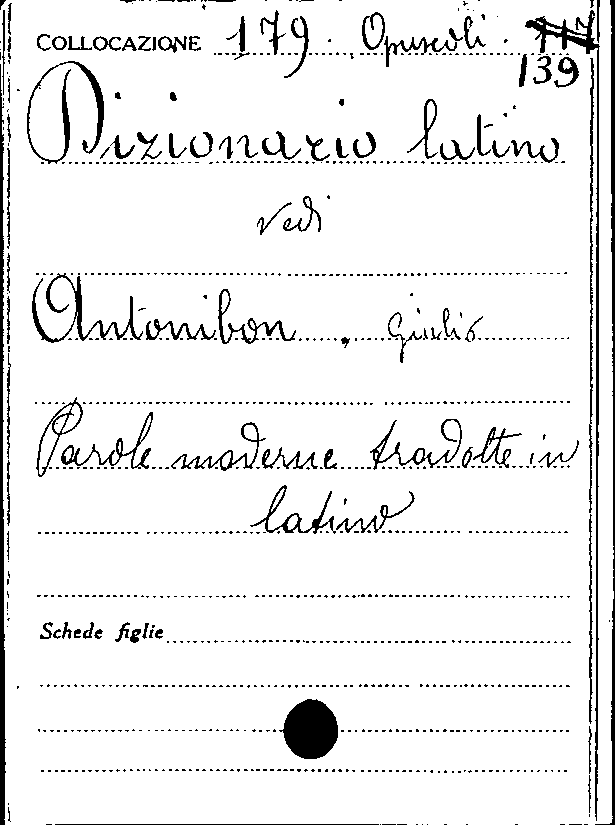 COLLOCAZIONE 179. Opuscoli. 117
139
Dizionario latino
vedi
Antonibon, Giulio
Parole moderne tradotte in
latino
Schede figlie